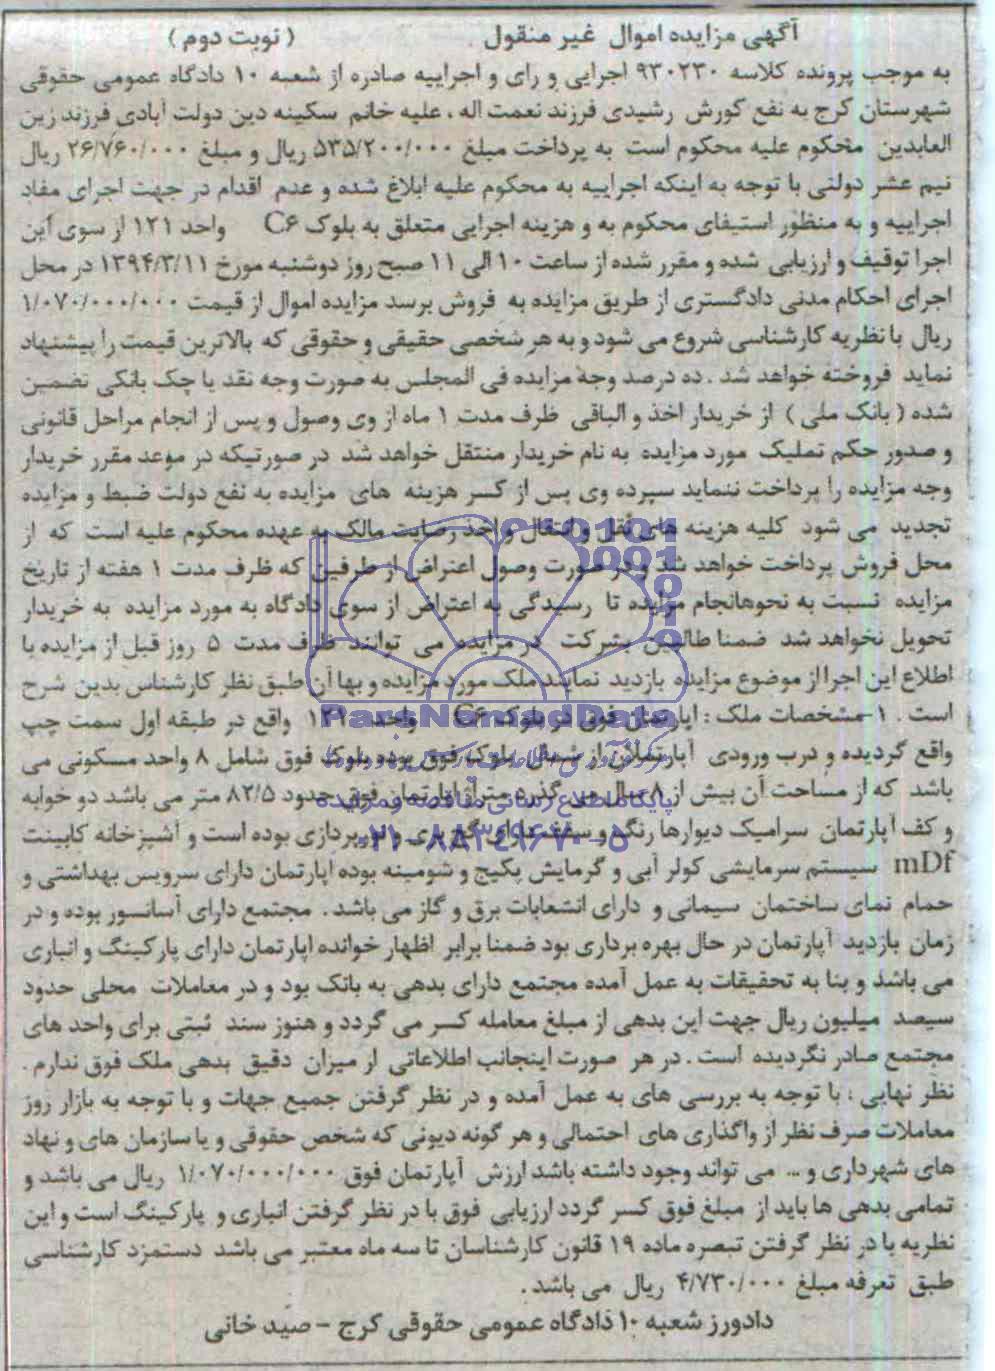 آگهی مزایده اموال غیر منقول (نوبت دوم)
به موجب پرونده کلاسه ۹۳۰۲۳۰ اجرایی و رای و اجراییه صادره از شعبه ۱۰ دادگاه عمومی حقوقی
شهرستان کرج به نفع کورش رشیدی فرزند نعمت اله ، علیه خانم سکینه دین دولت آبادی فرزند زین
العابدین محکوم علیه محکوم است به پرداخت مبلغ ۵۳۵/۲۰۰/۰۰۰ ریال و مبلغ ۲۶/۷۶۰/۰۰۰ ریال
نیم عشر دولتی با توجه به اینکه اجراییه به محکوم علیه ابلاغ شده و عدم اقدام در جهت اجرای مفاد
اجراییه و به منظور استیفای محکوم به و هزینه اجرایی متعلق به بلوک C۶ واحد ۱۲۱ از سوی این
اجرا توقیف و ارزیابی شده و مقرر شده از ساعت ۱۰ الی ۱۱ صبح روز دوشنبه مورخ ۱۳۹۴/۳/۱۱ در محل
اجرای احکام مدنی دادگستری از طریق مزایده به فروش برسد مزایده اموال از قیمت ۱/۰۷۰/۰۰۰/۰۰۰
ریال با نظریه کارشناسی شروع می شود و به هر شخصی حقیقی و حقوقی که بالاترین قیمت را پیشنهاد
نماید فروخته خواهد شد . ده درصد وجه مزایده فی المجلس به صورت وجه نقد یا چک بانکی تضمین
شده ( بانک ملی ) از خریدار اخذ و الباقی ظرف مدت ۱ ماه از وی وصول و پس از انجام مراحل قانونی
و صدور حکم تملیک مورد مزایده به نام خریدار منتقل خواهد شد در صورتیکه در موعد مقرر خریدار
وجه مزایده را پرداخت ننماید سپرده وی پس از کسر هزینه های مزایده به نفع دولت ضبط و مزایده
تجدید می شود کلیه هزینه های نقل و انتقال و اخذ رضایت مالک به عهده محکوم علیه است که از
محل فروش پرداخت خواهد شد و در صورت وصول اعتراض از طرفین که ظرف مدت ۱ هفته از تاریخ
مزایده نسبت به نحوهانجام مزایده تا رسیدگی به اعتراض از سوی دادگاه به مورد مزایده به خریدار
تحویل نخواهد شد ضمنا طالبین بشرکت در مزایده می توانند ظرف مدت ۵ روز قبل از مزایده با
اطلاع این اجرا از موضوع مزایده بازدید نمایند ملک مورد مزایده و بها آن طبق نظر کارشناس بدین شرح
است . ۱-مشخصات ملک : اپارتمان فوق در بلوک C۶ واحد ۱۲۱ واقع در طبقه اول سمت چپ
واقع گردیده و درب ورودی آپارتمان از شمال بلوک فوق بوده بلوک فوق شامل ۸ واحد مسکونی می
باشد که از مساحت آن بیش از ۸ سال می گذرد متراژ اپارتمان فوق حدود ۸۲/۵ متر می باشد دو خوابه
و کف آپارتمان سرامیک دیوارها رنگ و سقف دارای گچ بری و نورپردازی بوده است و آشپزخانه کابینت
mDf سیستم سرمایشی کولر آبی و گرمایش پکیج و شومینه بوده اپارتمان دارای سرویس بهداشتی و
حمام نمای ساختمان سیمانی و دارای انشعابات برق و گاز می باشد . مجتمع دارای آسانسور بوده و در
زمان بازدید آپارتمان در حال بهره برداری بود ضمنا برابر اظهار خوانده اپارتمان دارای پارکینگ و انباری
می باشد و بنا به تحقیقات به عمل آمده مجتمع دارای بدهی به باتک بود و در معاملات محلی حدود
سیصد میلیون ریال جهت این بدهی از مبلغ معامله کسر می گردد و هنوز سند ثبتی برای واحد های
مجتمع صادر نگردیده است . در هر صورت اینجانب اطلاعاتی از میزان دقیق بدهی ملک فوق ندارم .
نظر نهایی : با توجه به بررسی های به عمل آمده و در نظر گرفتن جمیع جهات و با توجه به بازار روز
معاملات صرف نظر از واگذاری های احتمالی و هر گونه دیونی که شخص حقوقی و یا سازمان های و نهاد
های شهرداری و ... می تواند وجود داشته باشد ارزش آپارتمان فوق ۱/۰۷۰/۰۰۰/۰۰۰ ریال می باشد و
تمامی بدهی ها باید از مبلغ فوق کسر گردد ارزیابی فوق با در نظر گرفتن انباری و پارکینگ است و این
نظریه با در نظر گرفتن تبصره ماده ۱۹ قانون کارشناسان تا سه ماه معتبر می باشد دستمزد کارشناسی
طبق تعرفه مبلغ ۴/۷۳۰/۰۰۰ ریال می باشد .
دادورز شعبه ۱۰ دادگاه عمومی حقوقی کرج - صید خانی
ParsNamadData
پایگاه اطلاع رسانی مناقصه و مزایده
۰۲۱-۸۸۳۴۹۶۷۰-۵